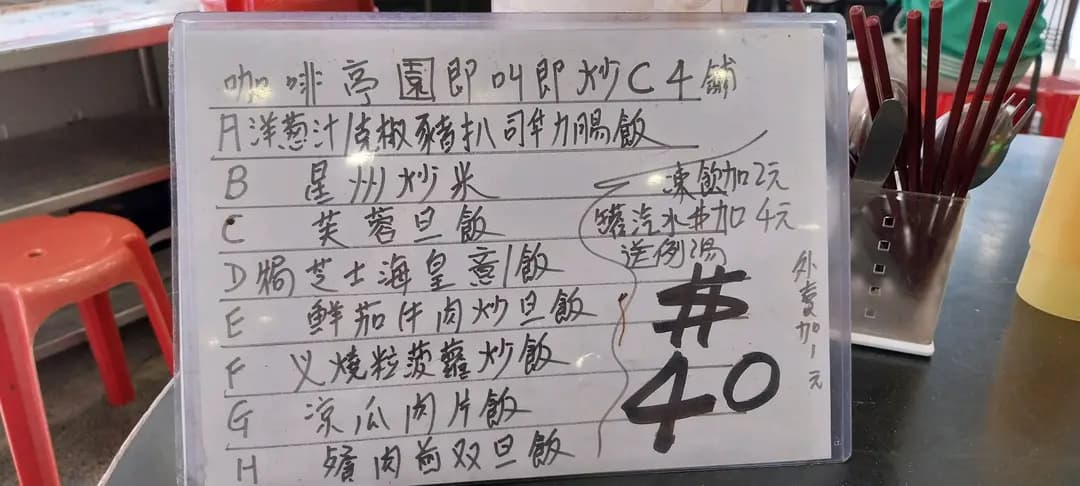 咖啡亭園即叫即炒C4舖
A洋葱汁/克椒豬扒司華力腸飯
B 星州炒米
C 芙蓉旦飯
D焗芝士海皇意/飯
E 鮮茄牛肉炒旦飯
F 义燒粒菠蘿炒飯
G 凉瓜肉片飯
H 歺肉煎双旦飯
凍飲加2元
罐汽水#加4元
送例湯
#40
外賣加1元